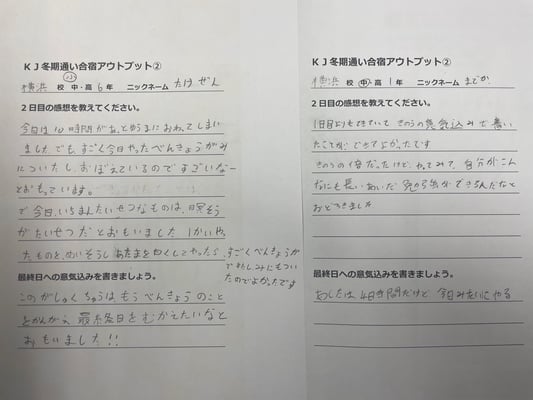 KJ冬期通い合宿アウトプット②
横浜 校 小 中・高 6年 ニックネーム たけぜん
2日目の感想を教えてください。
今日は10時間があっとゆうまにおわってしまい
ましたでも、すごく今日やったべんきょうがみ
についたし、おぼえているのですごいなー
とおもっています。
で今日、いちまんたいせつなものは、瞑そう
がたいせつだとおもいました 1かいや、
たものを、めいそうし あたまを白くしてやったら、すごくべんきょうが
でき たしみにもつい
たのでよかったです
最終日への意気込みを書きましょう。
このがしゅくちゅうはもうべんきょうのこと
をかんがえ、最終日をむかえたいなと
おもいました!!
KJ冬期通い合宿アウトプット②
横浜 校 中・高 1年 ニックネーム までか
2日目の感想を教えてください。
1日目よりもできていて きのうの意気込みで書い
たことができてよかったです
きのうの倍だったけど、やってみて、自分がこん
なにも長いあいだ勉強ができるんだなと
おどろきました
最終日への意気込みを書きましょう。
あしたは、4日時間だけど 今日みたいにやる